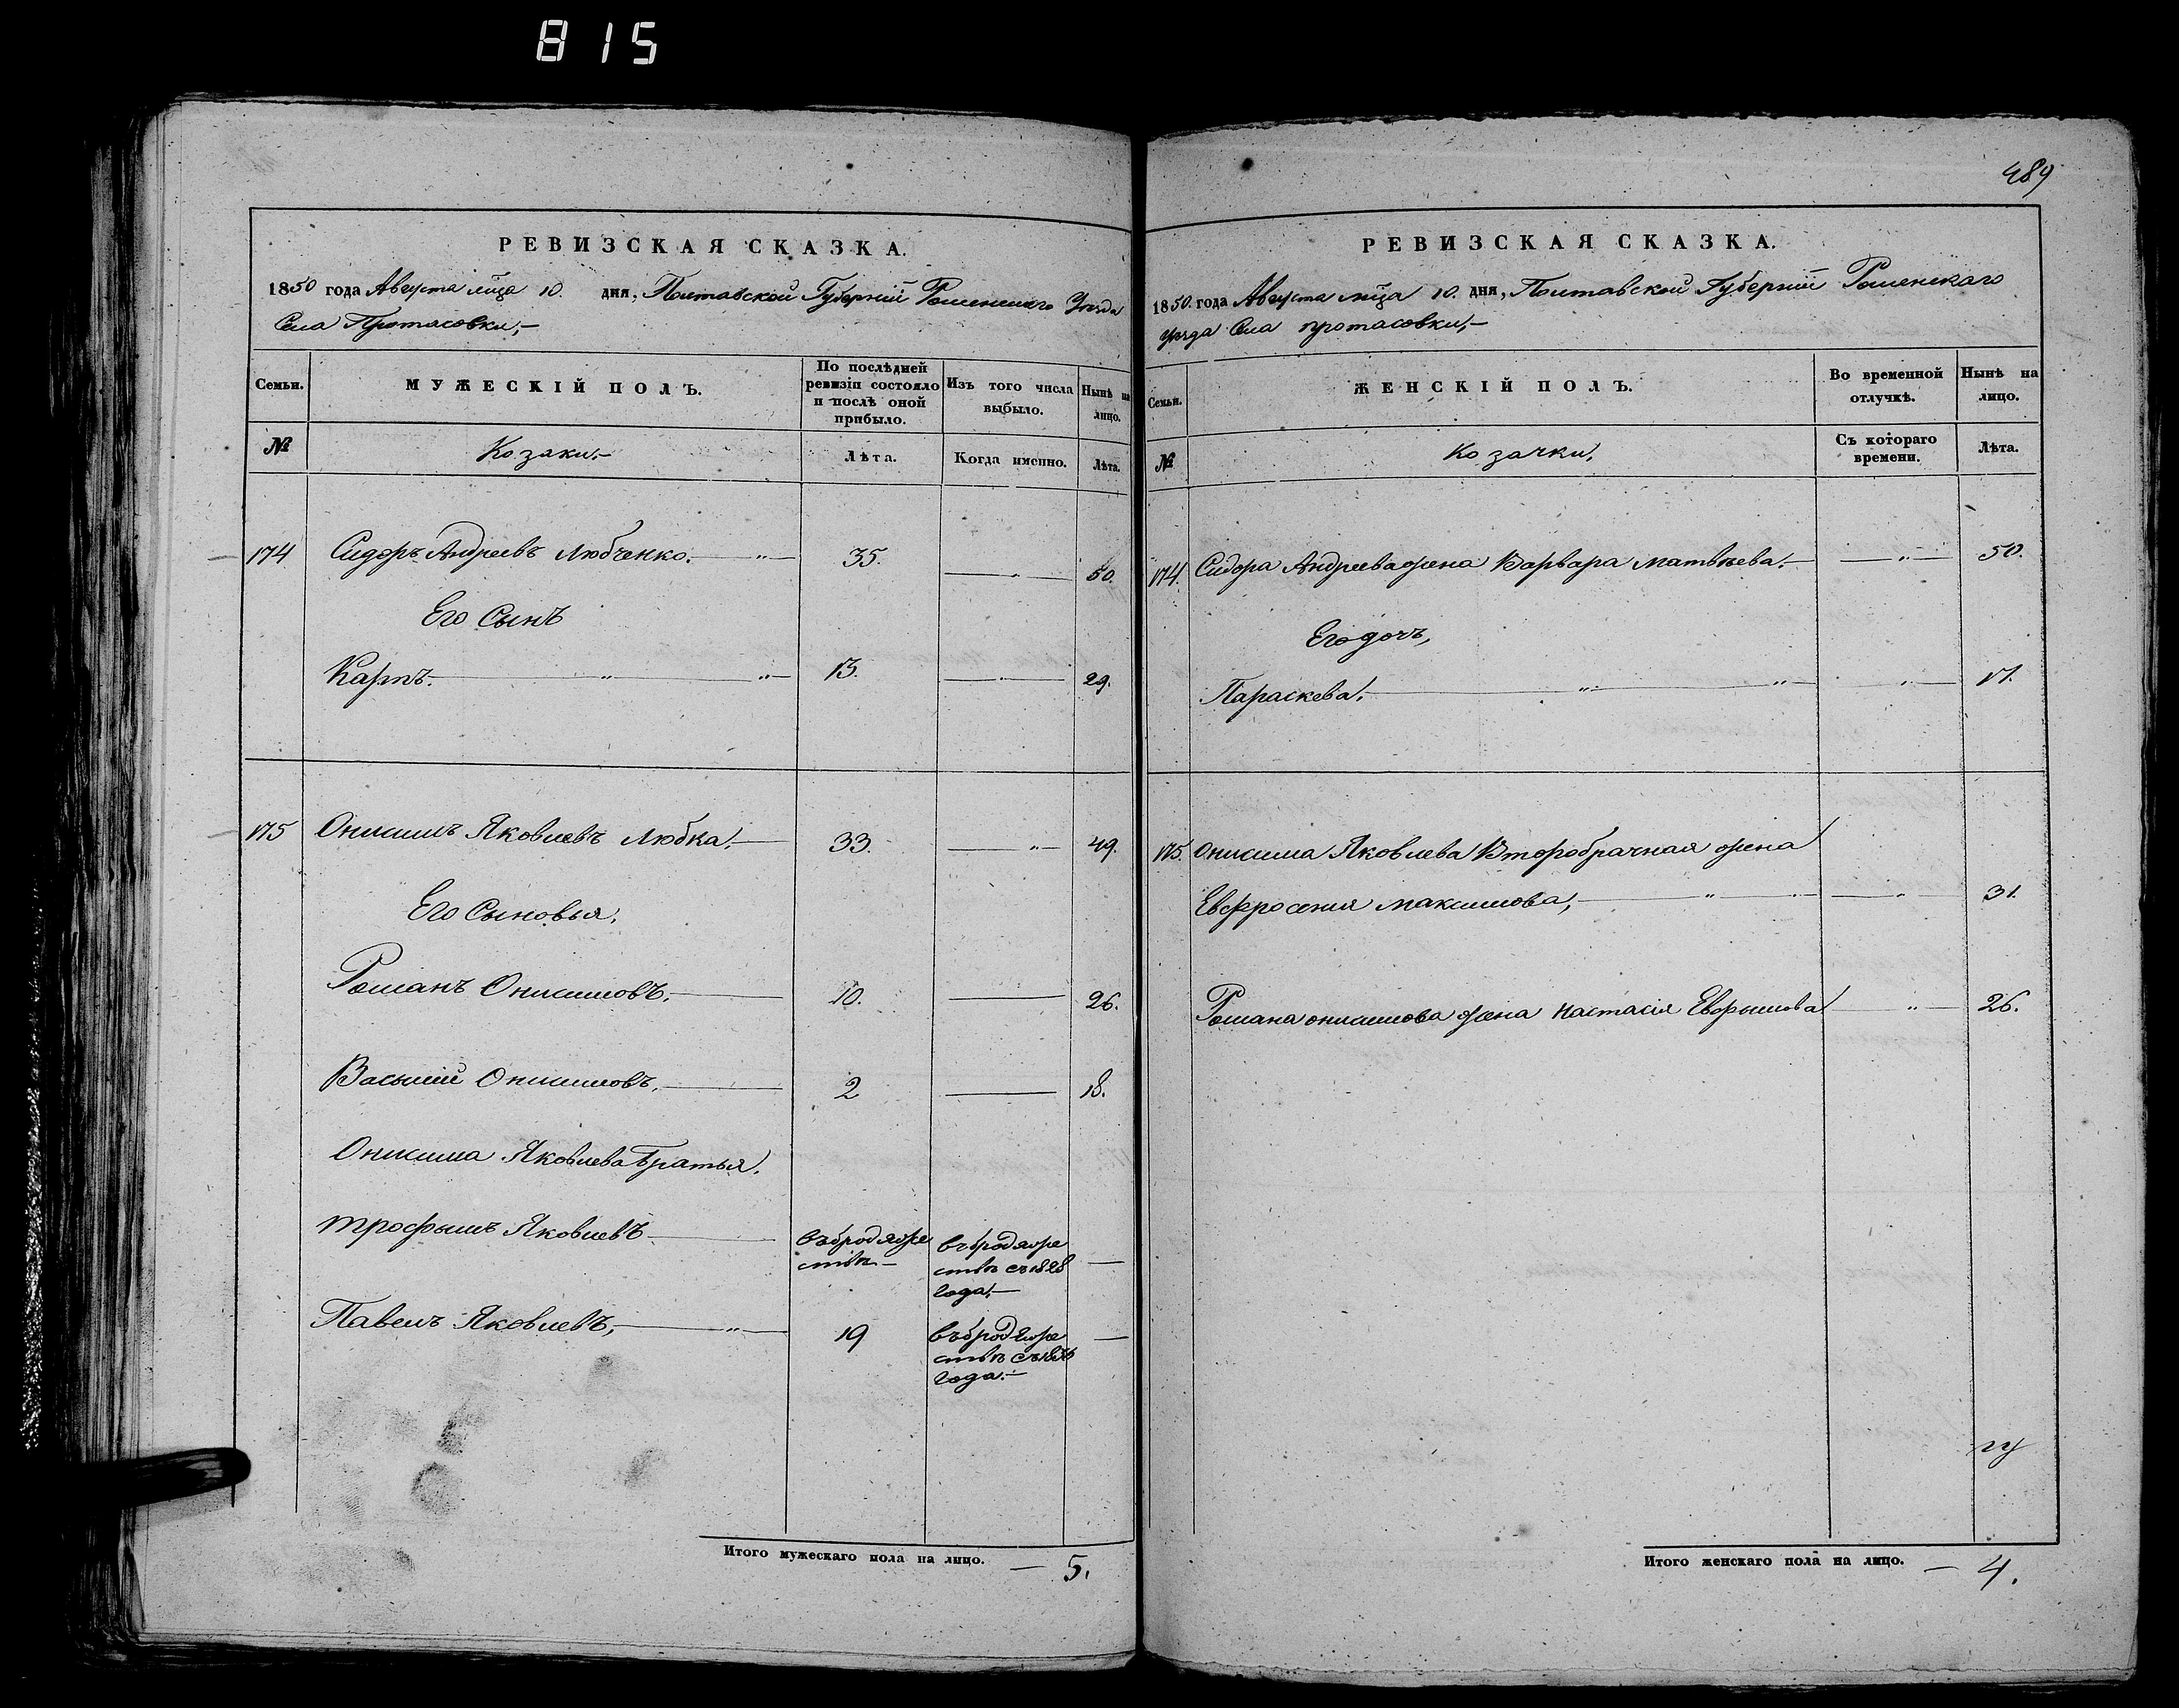 815
РЕВИЗСКАЯ СКАЗКА.
1850 года Августа мца 10. дня, Полтавской Губернiй Роменскаго Уезда
Села Протасовки,—
Семьи. МУЖЕСКІЙ ПОЛЪ. По послѣдней ревизіи состояло и послѣ оной прибыло. Изъ того числа выбыло. Нынѣ на лицо.
№ Козаки,— Лѣта. Когда именно. Лѣта.
174 Сидоръ Андреевъ Любченко. — " — 35. — " — 50.
Его Сынъ
Карпъ. — " — " — 13. — " — 29.
175 Онисимъ Яковлевъ Любка. — 33. — " — 49.
Его Сыновья,
Романъ Онисимовъ. — 10. — 26.
Василій Онисимовъ. — 2 — 18.
Онисима Яковлева Братья.
Трофымъ Яковлевъ — въ бродяже въ бродяже —
ствѣ — ствѣ съ 1828
года,—
Павелъ Яковлевъ, — " — 19 въ бродяже —
ствѣ съ 1836
года.—
Итого мужескаго пола на лицо. — 5.
489
РЕВИЗСКАЯ СКАЗКА.
1850. года Августа мца 10. дня, Полтавской Губернiй Роменскаго
уезда Села протасовки,—
Семьи. ЖЕНСКІЙ ПОЛЪ. Во временной отлучкѣ. Нынѣ на лицо.
№ Козачки, Съ котораго времени. Лѣта.
174. Сидора Андреева жена Варвара Матвѣева. — " — 50.
Его дочъ,
Параскева. — " — " — " — 17.
175. Онисима Яковлева Второбрачная жена
Евфросения Максимова, — " — " — 31.
Романа онисимова жена Настасія Евфымова — " — 26.
Итого женскаго пола на лицо. — 4.